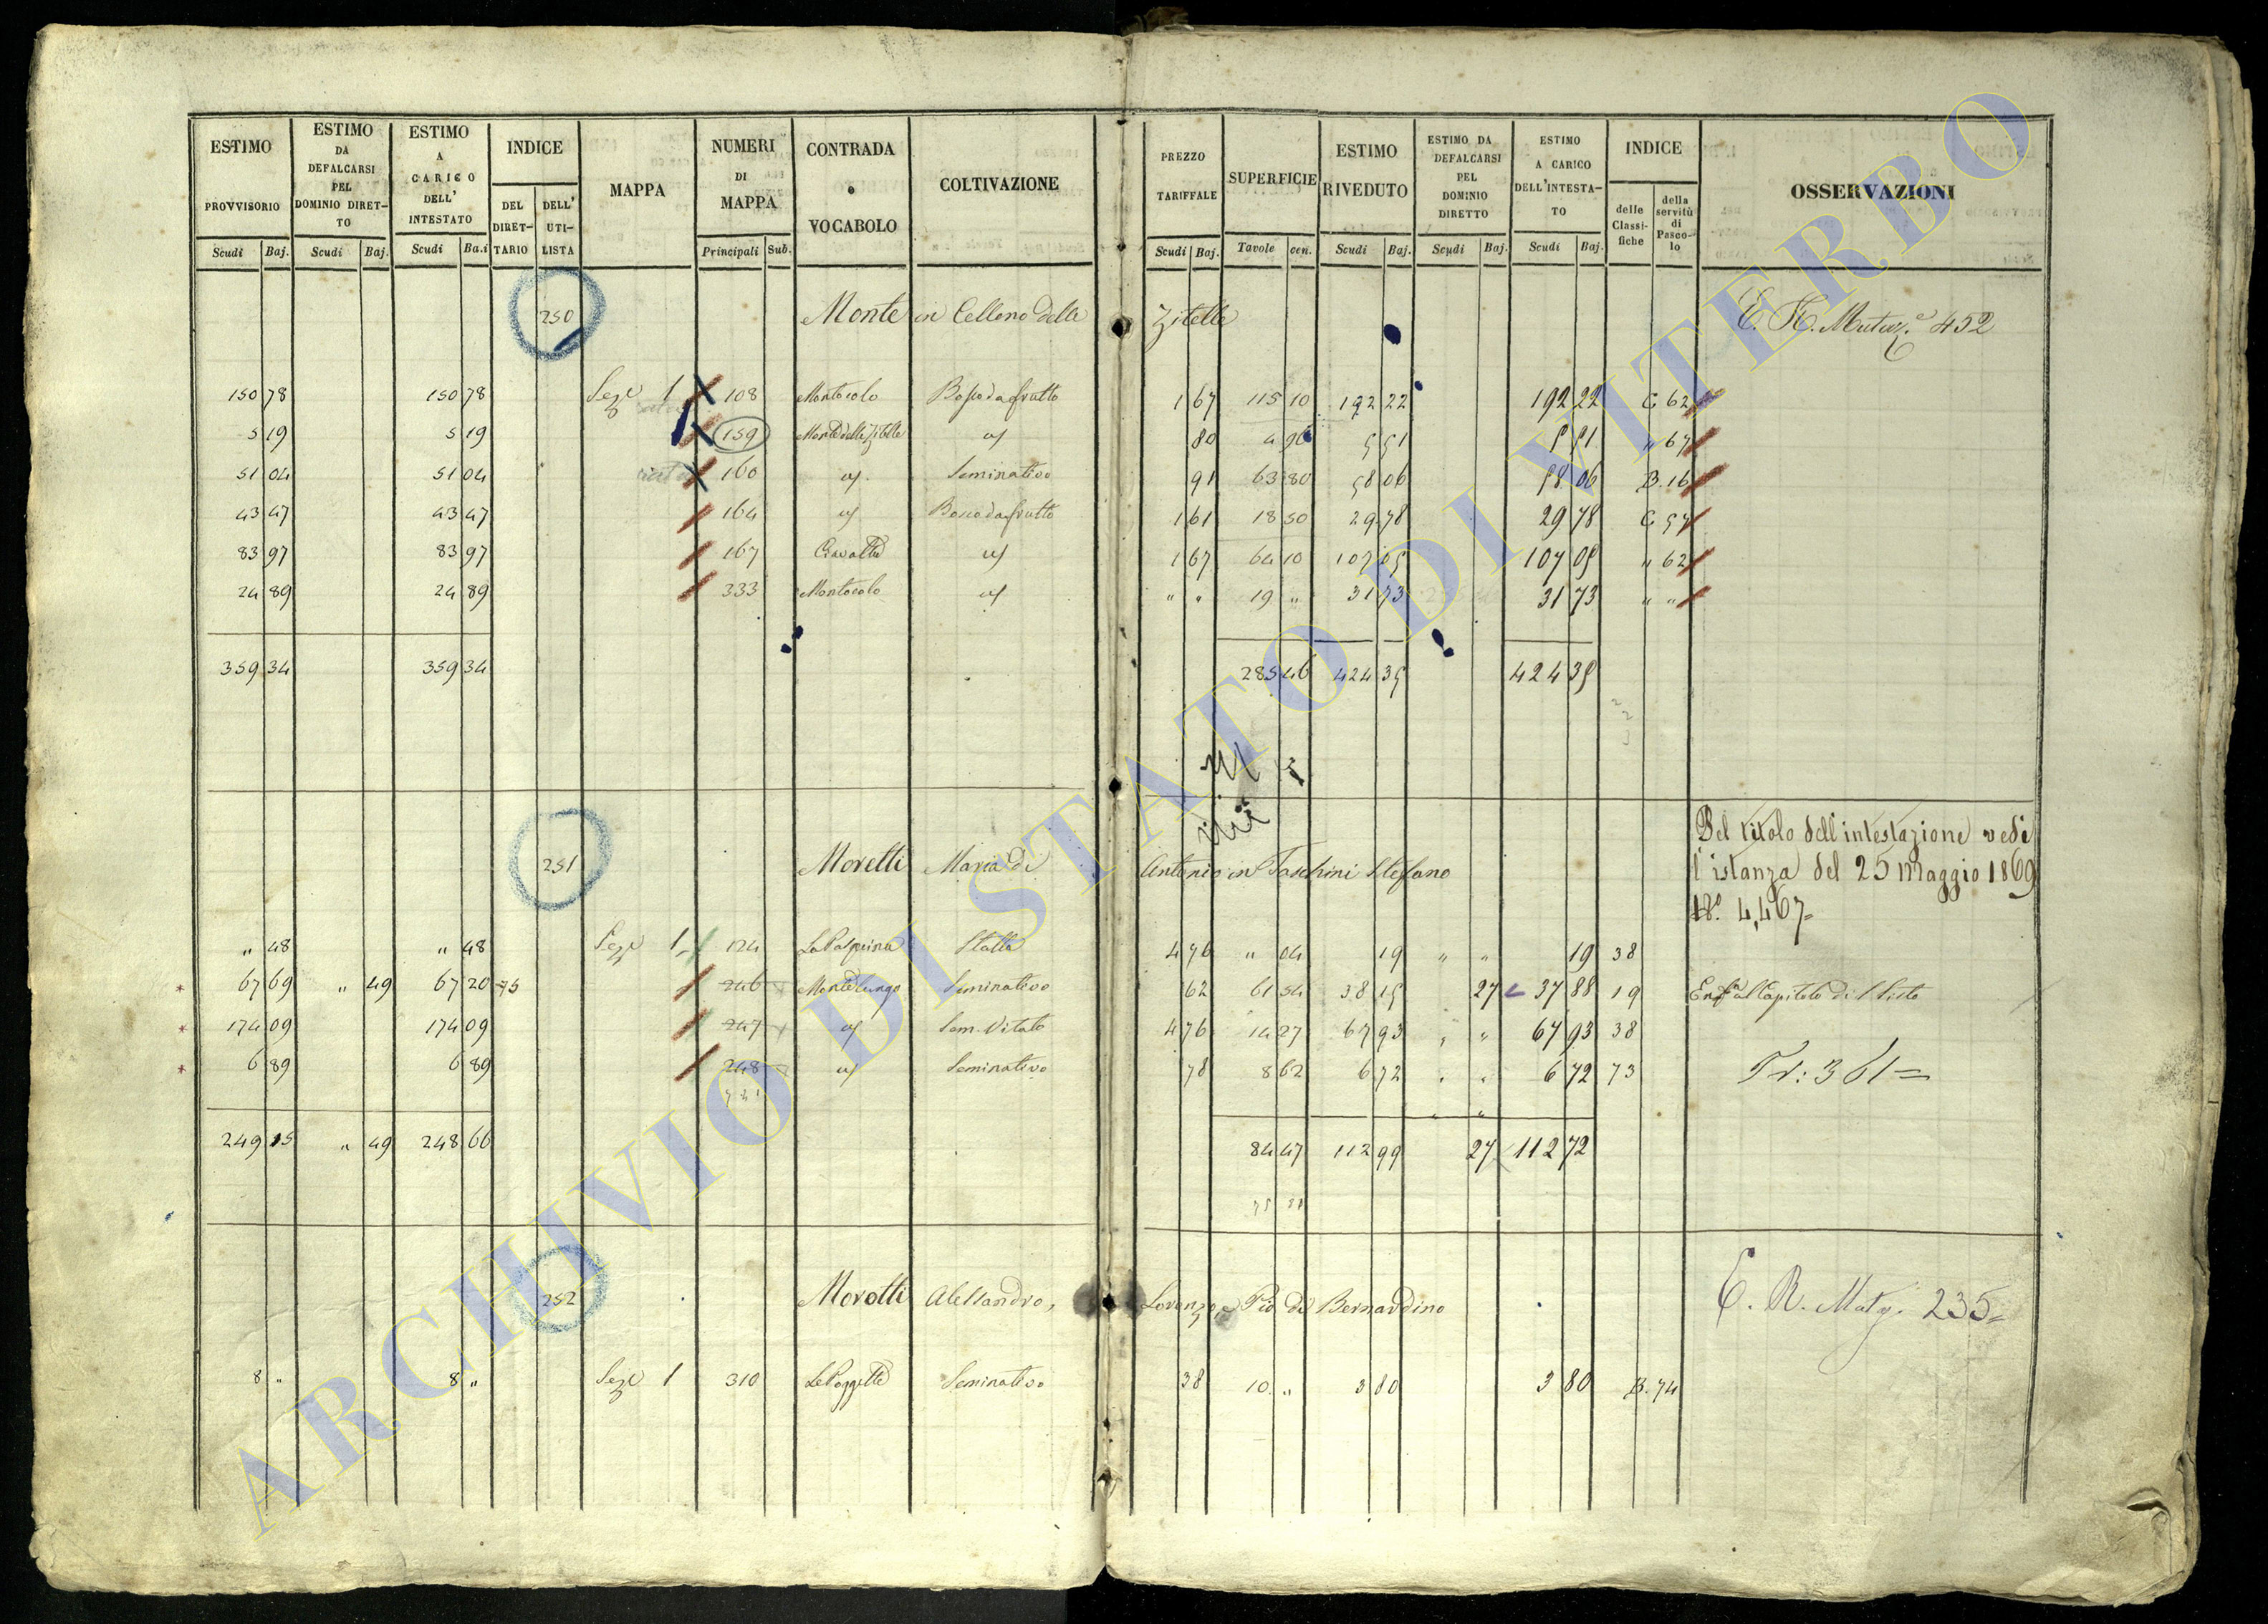 ESTIMO PROVVISORIO Scudi Baj.
ESTIMO DA DEFALCARSI PEL DOMINIO DIRET-TO Scudi Baj.
ESTIMO A CARICO DELL' INTESTATO Scudi Ba.i
INDICE DEL DIRET-TARIO DELL' UTI-LISTA
MAPPA
NUMERI DI MAPPA Principali Sub.
CONTRADA o VOCABOLO
COLTIVAZIONE
PREZZO TARIFFALE Scudi Baj.
SUPERFICIE Tavole cen.
ESTIMO RIVEDUTO Scudi Baj.
ESTIMO DA DEFALCARSI PEL DOMINIO DIRETTO Scudi Baj.
ESTIMO A CARICO DELL'INTESTA-TO Scudi Baj.
INDICE delle Classi-fiche della servitù di Pasco-lo
OSSERVAZIONI
250 Monte in Celleno delle Zitelle 452
150 78 150 78 Sez.e 1 108 Montocolo Bosco da frutto 1 67 115 10 192 22 192 22 C 62
5 19 5 19 159 Monte delle Zitelle " 80 4 96 5 51 5 51 " 67
51 04 51 04 160 " Seminativo 91 63 80 58 06 58 06 B. 16
43 47 43 47 164 " Bosco da frutto 1 61 18 50 29 78 29 78 C 57
83 97 83 97 167 " 1 67 64 10 107 05 107 05 " 62
24 89 24 89 333 Montocolo " " " 19 " 31 73 31 73 " "
359 34 359 34 285 46 424 35 424 35
251 Moretti Maria di Antonio in Taschini Stefano
Del titolo dell'intestazione vedi
l'istanza del 25 Maggio 1869
N.° 4,467=
" 48 " 48 Sez.e 1 124 Stalla 4 76 " 04 19 " " 19 38
67 69 " 49 67 20 75 246 Montelungo Seminativo 62 61 54 38 15 27 37 88 19 Enf.a al Capitolo di S Sisto
174 09 174 09 247 " Sem. Vitato 4 76 14 27 67 93 " " 67 93 38
6 89 6 89 248 " Seminativo 78 8 62 6 72 " " 6 72 73 Tr: 361=
249 15 " 49 248 66 84 47 112 99 27 112 72
252 Moretti Alessandro, Lorenzo, e Pio di Bernardino E. R. Mutaz. 235=
8 " 8 " Sez.e 1 310 Le Poggette Seminativo 38 10 " 3 80 3 80 B. 74
ARCHIVIO DI STATO DI VITERBO